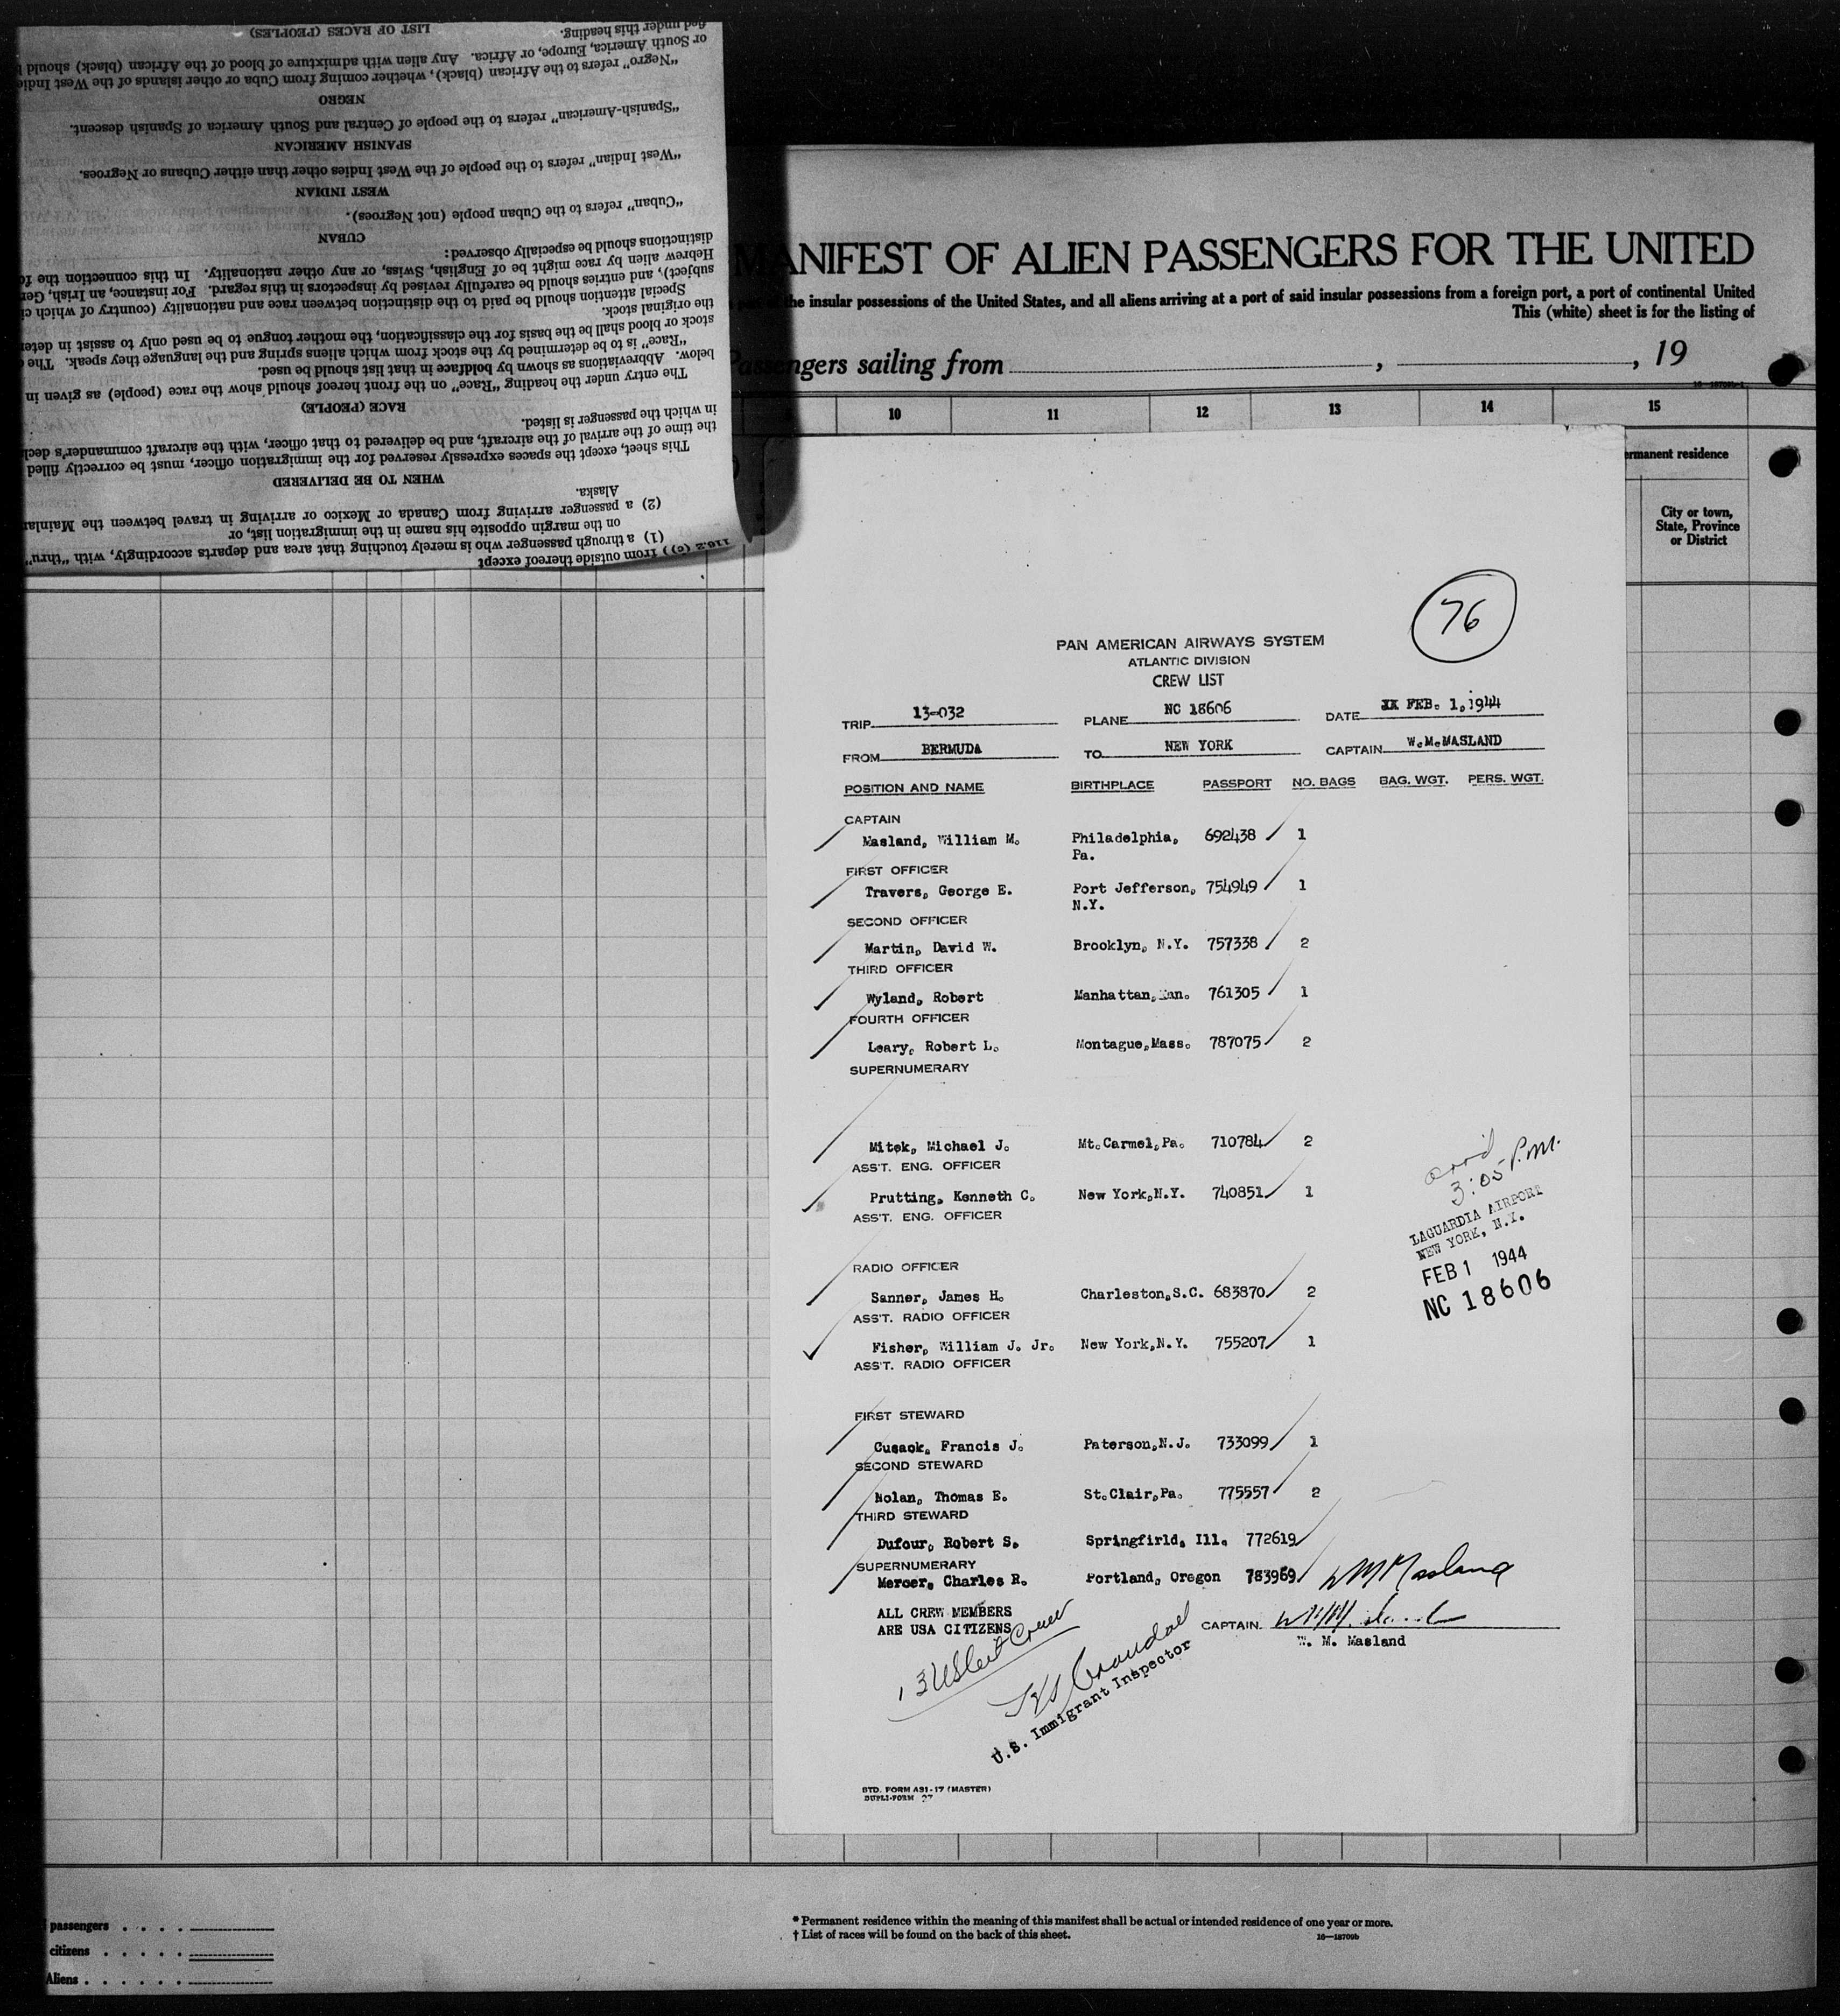 fied under this heading.
LIST OF RACES (PEOPLES)
or South America, Europe, or Africa. Any alien with admixture of blood of the African (black) should
"Negro" refers to the African (black), whether coming from Cuba or other islands of the West
NEGRO
"Spanish-American" refers to the people of Central and South America of Spanish descent.
SPANISH AMERICAN
"West Indian" refers to the people of the West Indies other than either Cubans or Negroes.
WEST INDIAN
"Cuban" refers to the Cuban people (not Negroes).
CUBAN
distinctions should be especially observed:
Hebrew alien by race might be of English, Swiss, or any other nationality. In this connection the
subject), and entries should be carefully revised by inspectors in this regard. For instance, an Irish,
Special attention should be paid to the distinction between race and nationality (country of which
the original stock.
stock or blood shall be the basis for the classification, the mother tongue to be used only to assist in
"Race" is to be determined by the stock from which aliens spring and the language they speak. The
below. Abbreviations as shown by boldface in that list should be used.
The entry under the heading "Race" on the front hereof should show the race (people) as given in
RACE (PEOPLE)
in which the passenger is listed.
the time of the arrival of the aircraft, and be delivered to that officer, with the aircraft commander's
This sheet, except the spaces expressly reserved for the immigration officer, must be correctly filled
WHEN TO BE DELIVERED
Alaska.
(2) a passenger arriving from Canada or Mexico or arriving in travel between the
on the margin opposite his name in the immigration list, or
(1) a through passenger who is merely touching that area and departs accordingly, with "thru"
116.2 (c)) from outside thereof except
MANIFEST OF ALIEN PASSENGERS FOR THE UNITED
the insular possessions of the United States, and all aliens arriving at a port of said insular possessions from a foreign port, a port of continental United
This (white) sheet is for the listing of
Passengers sailing from , , 19
16—18709b-1
10 11 12 13 14 15
ermanent residence
City or town,
State, Province
or District
76
PAN AMERICAN AIRWAYS SYSTEM
ATLANTIC DIVISION
CREW LIST
TRIP 13-032 PLANE NC 18606 DATE FEB. 1, 1944
FROM BERMUDA TO NEW YORK CAPTAIN W.M.MASLAND
POSITION AND NAME BIRTHPLACE PASSPORT NO. BAGS BAG. WGT. PERS. WGT.
CAPTAIN
Masland, William M. Philadelphia, 692438 1
Pa.
FIRST OFFICER
Travers, George E. Port Jefferson, 754949 1
N.Y.
SECOND OFFICER
Martin, David W. Brooklyn, N.Y. 757338 2
THIRD OFFICER
Wyland, Robert Manhattan,Kan. 761305 1
FOURTH OFFICER
Leary, Robert L. Montague,Mass. 787075 2
SUPERNUMERARY
Mitek, Michael J. Mt.Carmel,Pa. 710784 2
ASS'T. ENG. OFFICER
Prutting, Kenneth C. New York,N.Y. 740851 1
ASS'T. ENG. OFFICER
RADIO OFFICER
Sanner, James H. Charleston,S.C. 683870 2
ASS'T. RADIO OFFICER
Fisher, William J. Jr. New York,N.Y. 755207 1
ASS'T. RADIO OFFICER
FIRST STEWARD
Cusack, Francis J. Paterson,N.J. 733099 1
SECOND STEWARD
Nolan, Thomas E. St.Clair,Pa. 775557 2
THIRD STEWARD
Dufour, Robert S. Springfirld, Ill. 772619
SUPERNUMERARY
Mercer, Charles R. Portland, Oregon 783969
WM Masland
ALL CREW MEMBERS
ARE USA CITIZENS
CAPTAIN
W. M. Masland
arrd
3:05 P.M.
LAGUARDIA AIRPORT
NEW YORK, N.Y.
FEB 1 1944
NC 18606
13 US Cit Crew
Crandal
U.S. Immigrant Inspector
STD. FORM A31-17 (MASTER)
DUPLI-FORM 27
passengers . . . .
citizens . . . . .
Aliens . . . . . .
* Permanent residence within the meaning of this manifest shall be actual or intended residence of one year or more.
† List of races will be found on the back of this sheet.
16—18709b